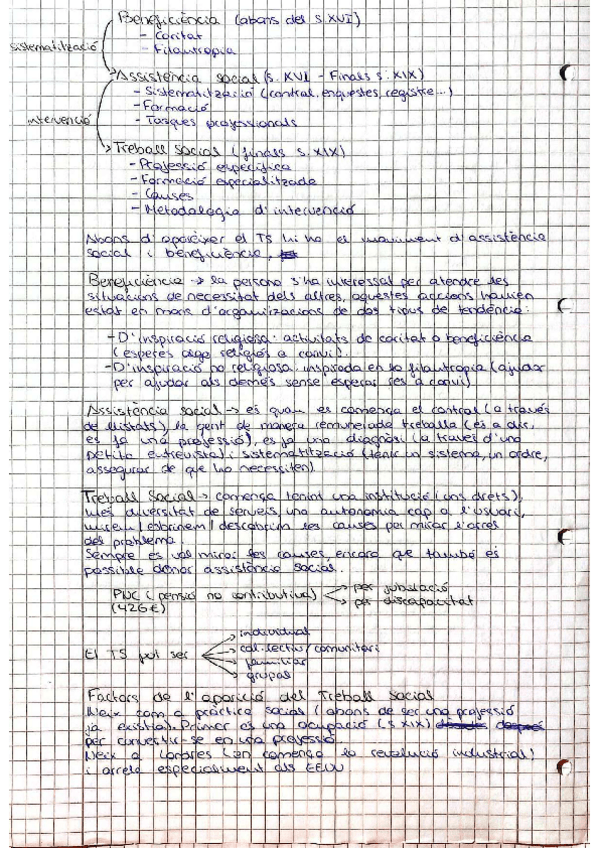 Beneficència (abans del s.XVI)
- Caritat
- Filantropia
sistematització
Assistència social (s. XVI - Finals s. XIX)
- Sistematització (control, enquestes, registre...)
- Formació
- Tasques professionals
intervenció
Treball Social (finals s. XIX)
- Professió específica
- Formació especialitzada
- Causes
- Metodologia d'intervenció
Abans d'aparèixer el TS hi ha el moviment d'assistència
social i beneficència,
Beneficència → la persona s'ha interessat per atendre les
situacions de necessitat dels altres, aquestes accions havien
estat en mans d'organitzacions de dos tipus de tendència:
- D'inspiració religiosa: activitats de caritat o beneficència
(esperes algo religiós a canvi).
- D'inspiració no religiosa: inspirada en la filantropia (ajudar
per ajudar als demés sense esperar res a canvi)
Assistència social → és quan es comença el control (a través
de llistats), la gent de manera remunerada treballa (és a dir,
es ja una professió), es ja una diagnòsi (a través d'una
petita entrevista) i sistematització (tenir un sistema, un ordre,
assegurar de que ho necessiten)
Treball Social → comença tenint una institució (uns drets),
més diversitat de serveis, una autonomia cap a l'usuari,
mirem/esbrinem/descobrim les causes per mirar l'arrel
del problema.
Sempre es vol mirar les causes, encara que també és
possible donar assistència social.
PNC (pensió no contributiva) → per jubilació
(426€) → per discapacitat
El TS pot ser → individual
→ col·lectiu/comunitari
→ familiar
→ grupal
Factors de l'aparició del Treball Social
Neix com a pràctica social (abans de ser una professió
ja existia). Primer és una ocupació (s.XIX)
per convertir-se en una professió.
Neix a Londres (on comença la revolució industrial)
i arrela especialment als EEUU